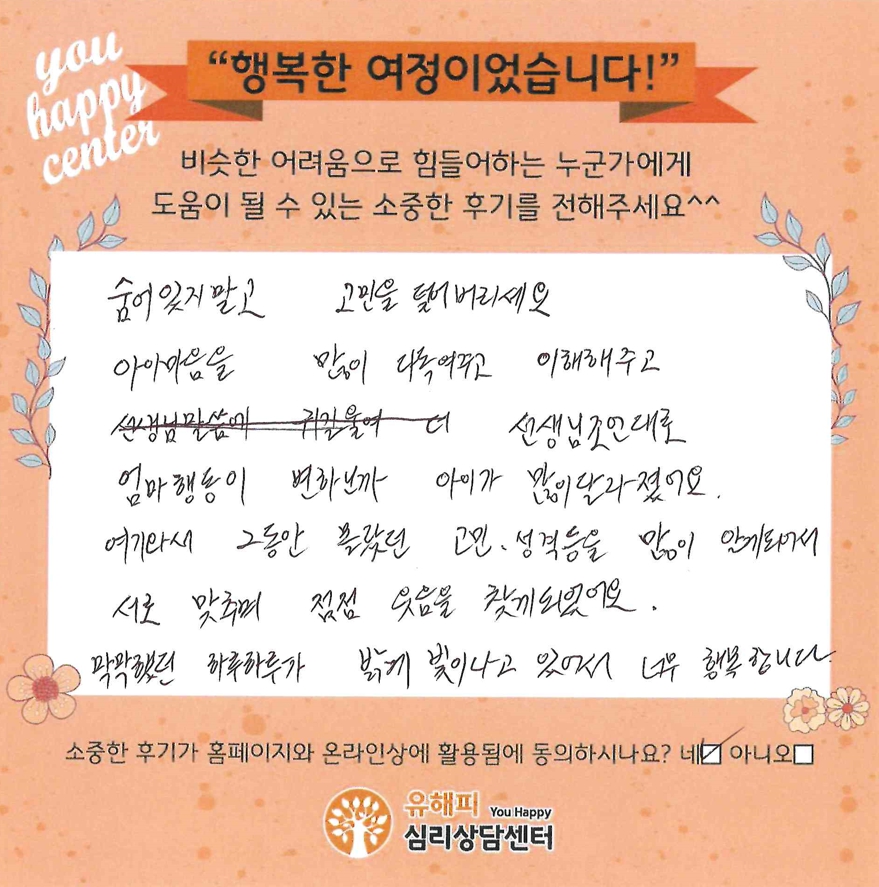 you
happy
center
“행복한 여정이었습니다!”
비슷한 어려움으로 힘들어하는 누군가에게
도움이 될 수 있는 소중한 후기를 전해주세요^^
숨어있지말고 고민을 털어버리세요
아이마음을 많이 다독여주고 이해해주고
선생님말씀에 귀기울여 더 선생님조언대로
엄마행동이 변하니까 아이가 많이달라졌어요.
여기와서 그동안 몰랐던 고민.성격등을 많이 알게되어서
서로 맞추며 점점 웃음을 찾게되었어요.
막막했던 하루하루가 밝게 빛이나고 있어서 너무 행복합니다.
소중한 후기가 홈페이지와 온라인상에 활용됨에 동의하시나요? 네☑ 아니오☐
유해피 You Happy
심리상담센터